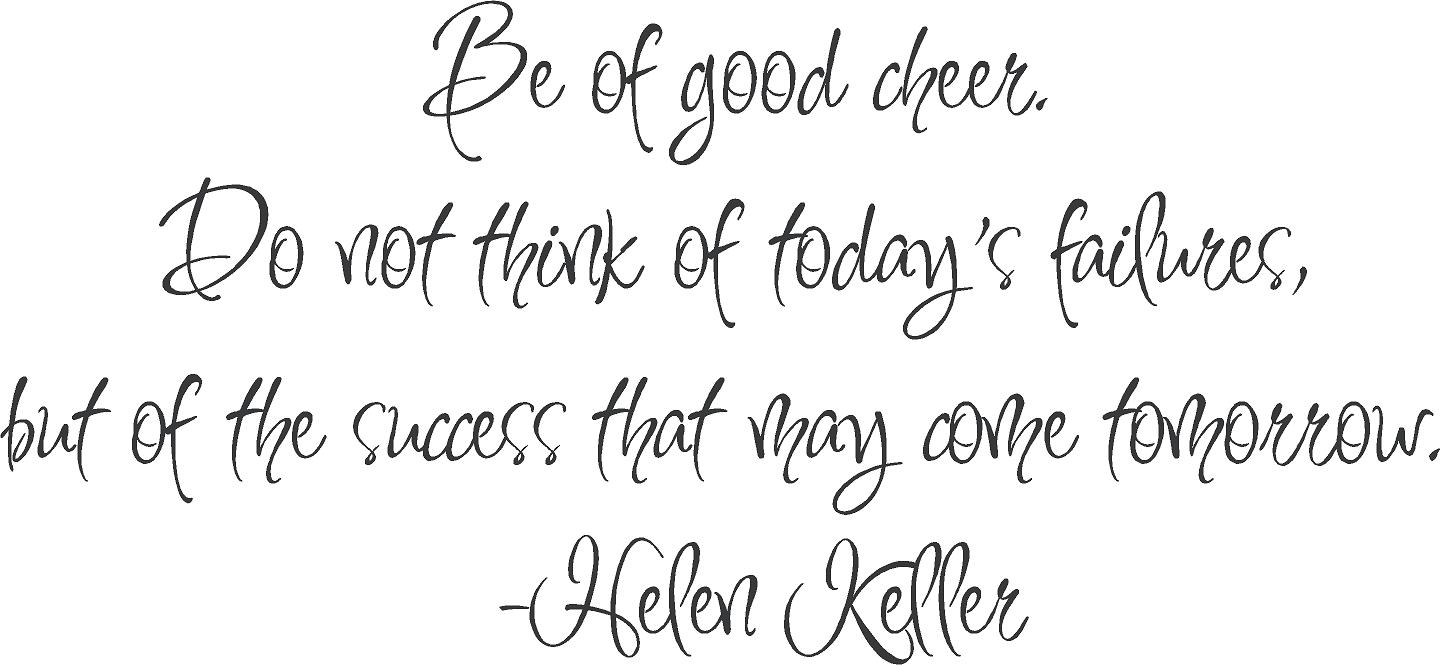 Be of good cheer.
Do not think of today's failures,
but of the success that may come tomorrow.
-Helen Keller